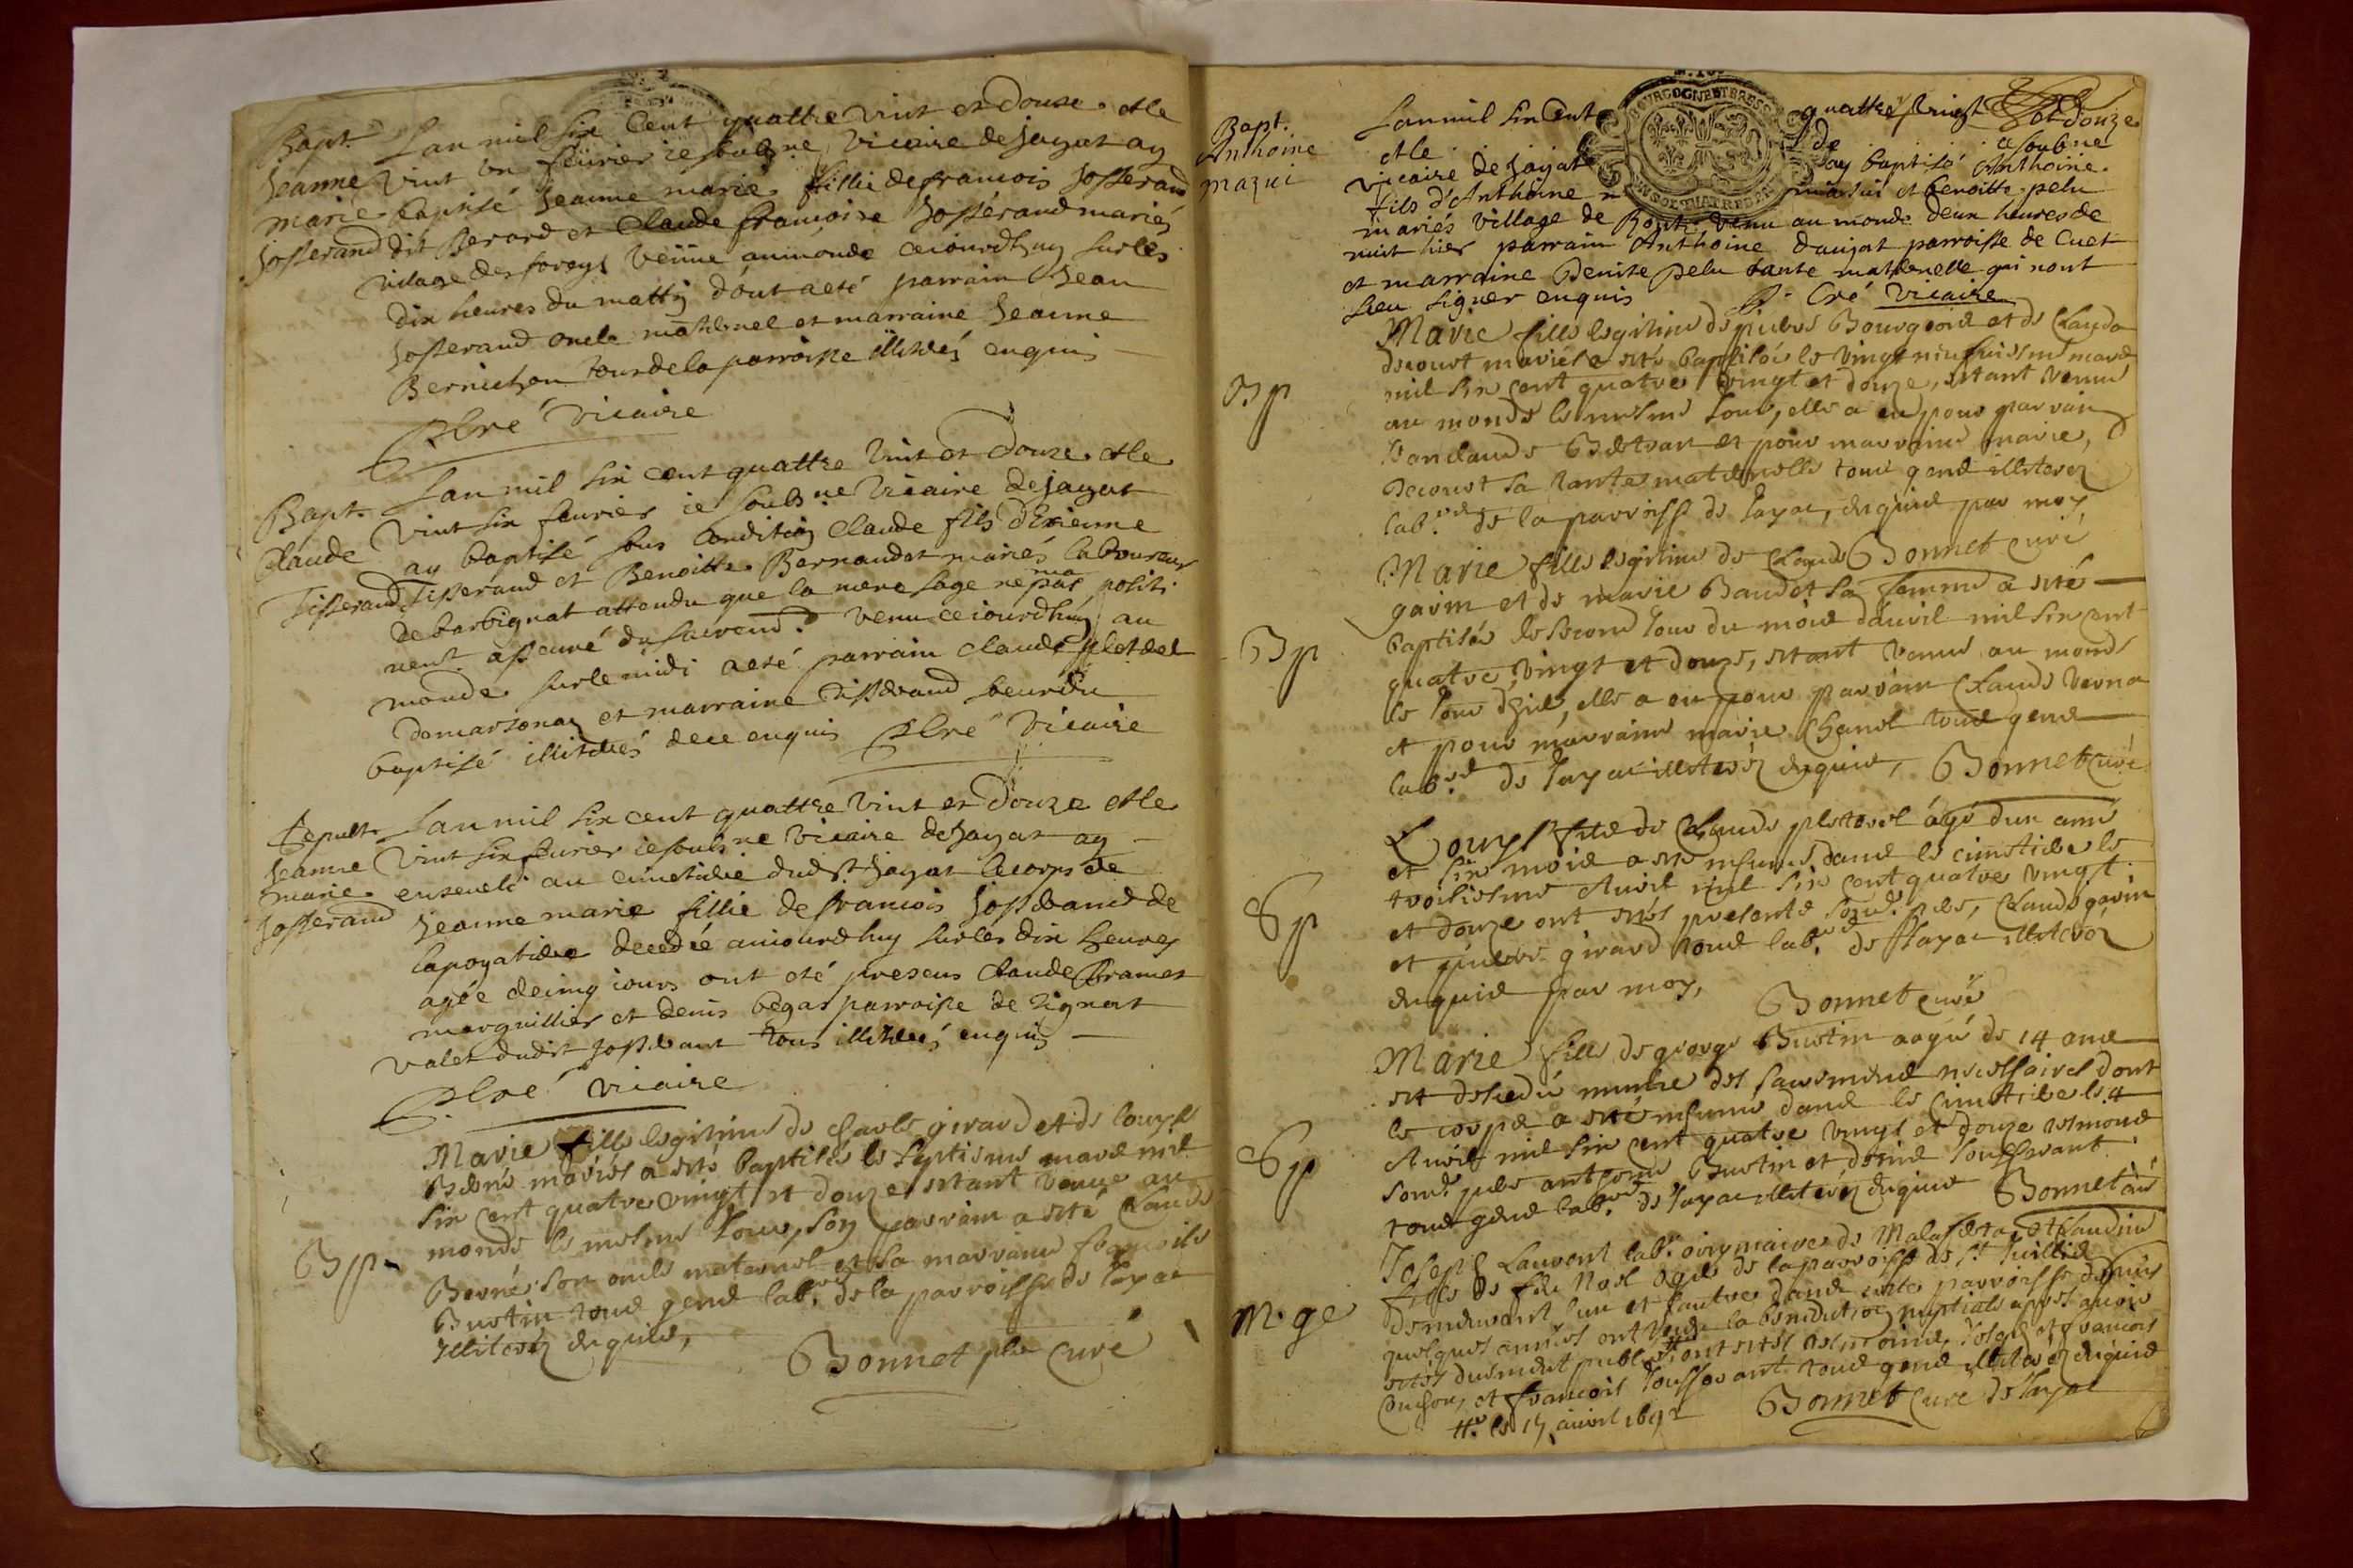 Bapt. Lan mil six Cent quattre vint et Douze et le
Jeanne vint un feuvrier ie soubz.ne vicaire de jayat ay
marie baptisé Jeanne marie fillie de francois Josserand
Josserand dit Berard et Claude francoise Josserand mariés
village des foreys venue au monde ceiourdhuy sur les
dix heures du mattin dont a eté parrain Jean
Josserand oncle maternel et marraine Jeanne
Bernichon tous de la parroisse illiterés enquis
vicaire
Bapt. Lan mil six cent quattre vint et Douze et le
vint six feuvrier ie soubs.ne vicaire de jayat
Claude ay baptisé sous condition Claude fils d'Etienne
Tisserand Tisserand et Benoitte Bernaudat mariés laboureur
de barbignat attendu que la mere sage ne ma pas positi
vent asseuré venu ceiourdhuy au
monde sur le midi a eté parrain claude pletdel
de marsonas et marraine Tisserand
baptisé illiterés de ce enquis vicaire
Sepult. Lan mil six cent quattre vint et Douze et le
Jeanne vint six feuvrier ie soubs.ne vicaire de Jayat ay
marie enseveli au cimetiere dudit Jayat le corps de
Josserand Jeanne marie fillie de francois Josserand de
lapoyatiere decedée auiourdhuy sur les dix heures
agée de cinq iours ont eté presens claude
marguillier et denis begat parroisse de
valet dudit Josserant tous illiterés enquis
vicaire
Marie fille legitime de charle girard et de louyse
Berné mariés a esté baptisée le septieme mars mil
six cent quatre vingt et douze estant venue au
monde le mesme iour, son parrain a esté Claude
Bp. Berné son oncle maternel et sa marraine francoise
Bustin tous gens lab.rs de la parroisse de Jayac
illiterez enquis,
Bonnet pbr Curé
Bapt. Lan mil six Cent quattre vingt et douze
Anthoine et le de ie soub.ne
mazui vicaire de Jayat ay baptisé Anthoine
fils d'Anthoine mazui et benoitte pelu
mariés village de venu au monde deux heures de
nuit hier parrain Anthoine daujat parroisse de Cuet
et marraine Denise pelu tante maternelle qui nont
sceu signer enquis vicaire
Marie fille legitime de pierre Bourgeois et de Clauda
decourt mariés a esté baptisée le vingt neufuiesme mars
mil six cent quatre vingt et douze, estant venue
Bp au monde le mesme iour, elle a eu pour parrain
et pour marraine marie,
decourt sa tante maternelle tous gens illiterez
lab.rs de la parroisse de Jayac, enquis par moy,
Bonnet curé
Marie fille legitime de Claude
gavin et de marie Baudet sa femme a esté
Bp baptisée le second iour du mois dauvil mil six cent
quatre vingt et douze, estant venue au monde
le iour dhier, elle a eu pour parrain Claude verna
et pour marraine marie Chanel tous gens
lab.rs de Jayac illiterez enquis, Bonnet curé
Louys fils de Claude pletovel agé dun ans
et six mois a esté inhumé dans le cimetiere le
Sp troisiesme Auvil mil six cent quatre vingt
et douze ont estés presents Claude gavin
et pierre girard tous lab.rs de Jayac illiterez
enquis par moy, Bonnet curé
Marie fille de george Bustin aagée de 14 ans
est decedée munie des sacremens necessaires dont
le corps a esté inhumé dans le cimetiere le 4
Sp Auvil mil six cent quatre vingt et douze
Bustin et denis Jousserant
tous gens lab.rs de Jayac illiterez enquis Bonnet curé
Joseph Laurent lab.r de Malafretaz et Claudine
fille de feu Noel de la parroisse de St Jullié
demeurant lun et lautre dans ceste parroisse depuis
M.ge quelques années ont receu la benediction nuptiale apres avoir
estés duement publiés # ont estés tesmoins, Joseph et francois
et francois Jousserant tous gens illiterez enquis
#. le 15 auvil 1692 Bonnet Curé de Jayac